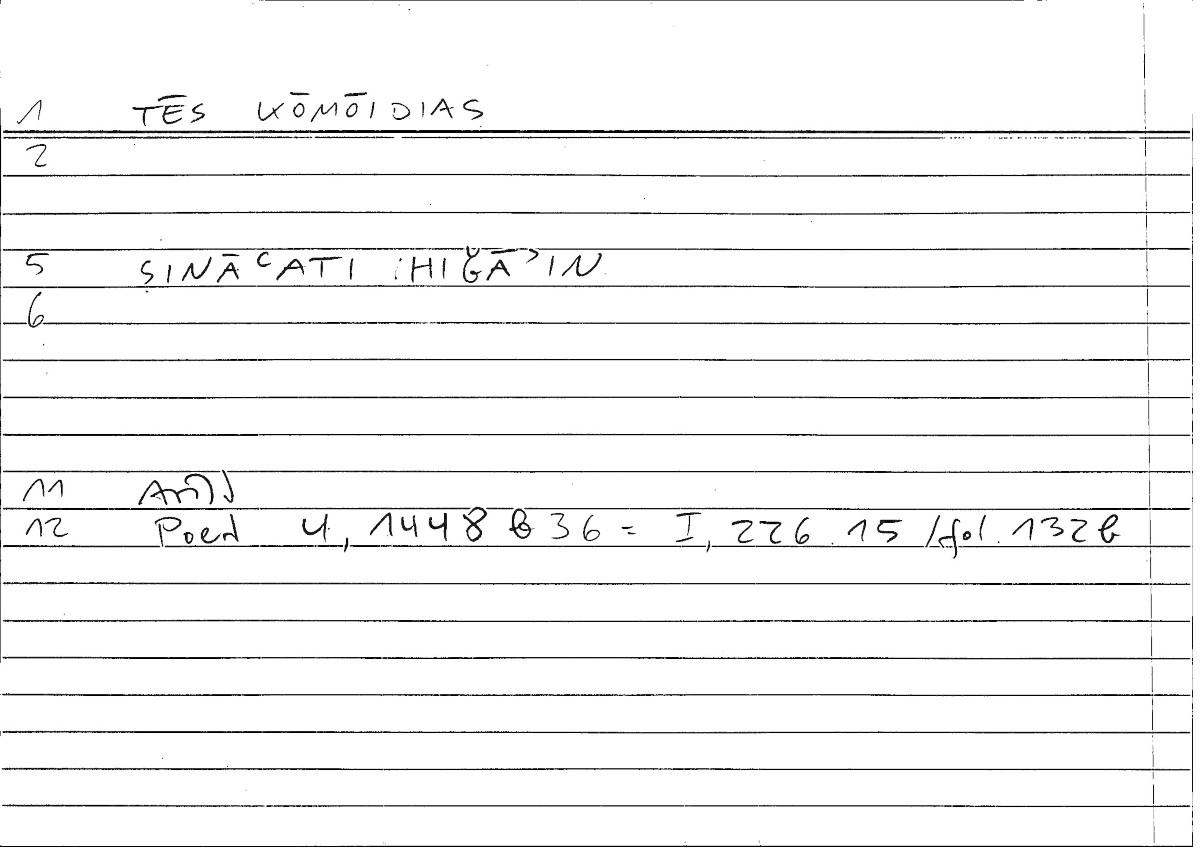 1 TĒS KŌMŌIDIAS
2
5 ṢINĀʿATI HIǦĀʾIN
6
11
12 Poet 4, 1448 b 36 = I, 226.15 / fol. 132b